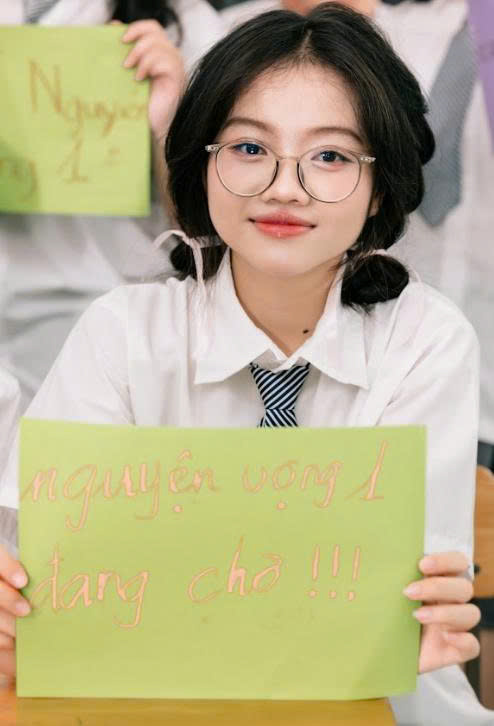 Nguyện
1
nguyện vọng 1
đang chờ !!!